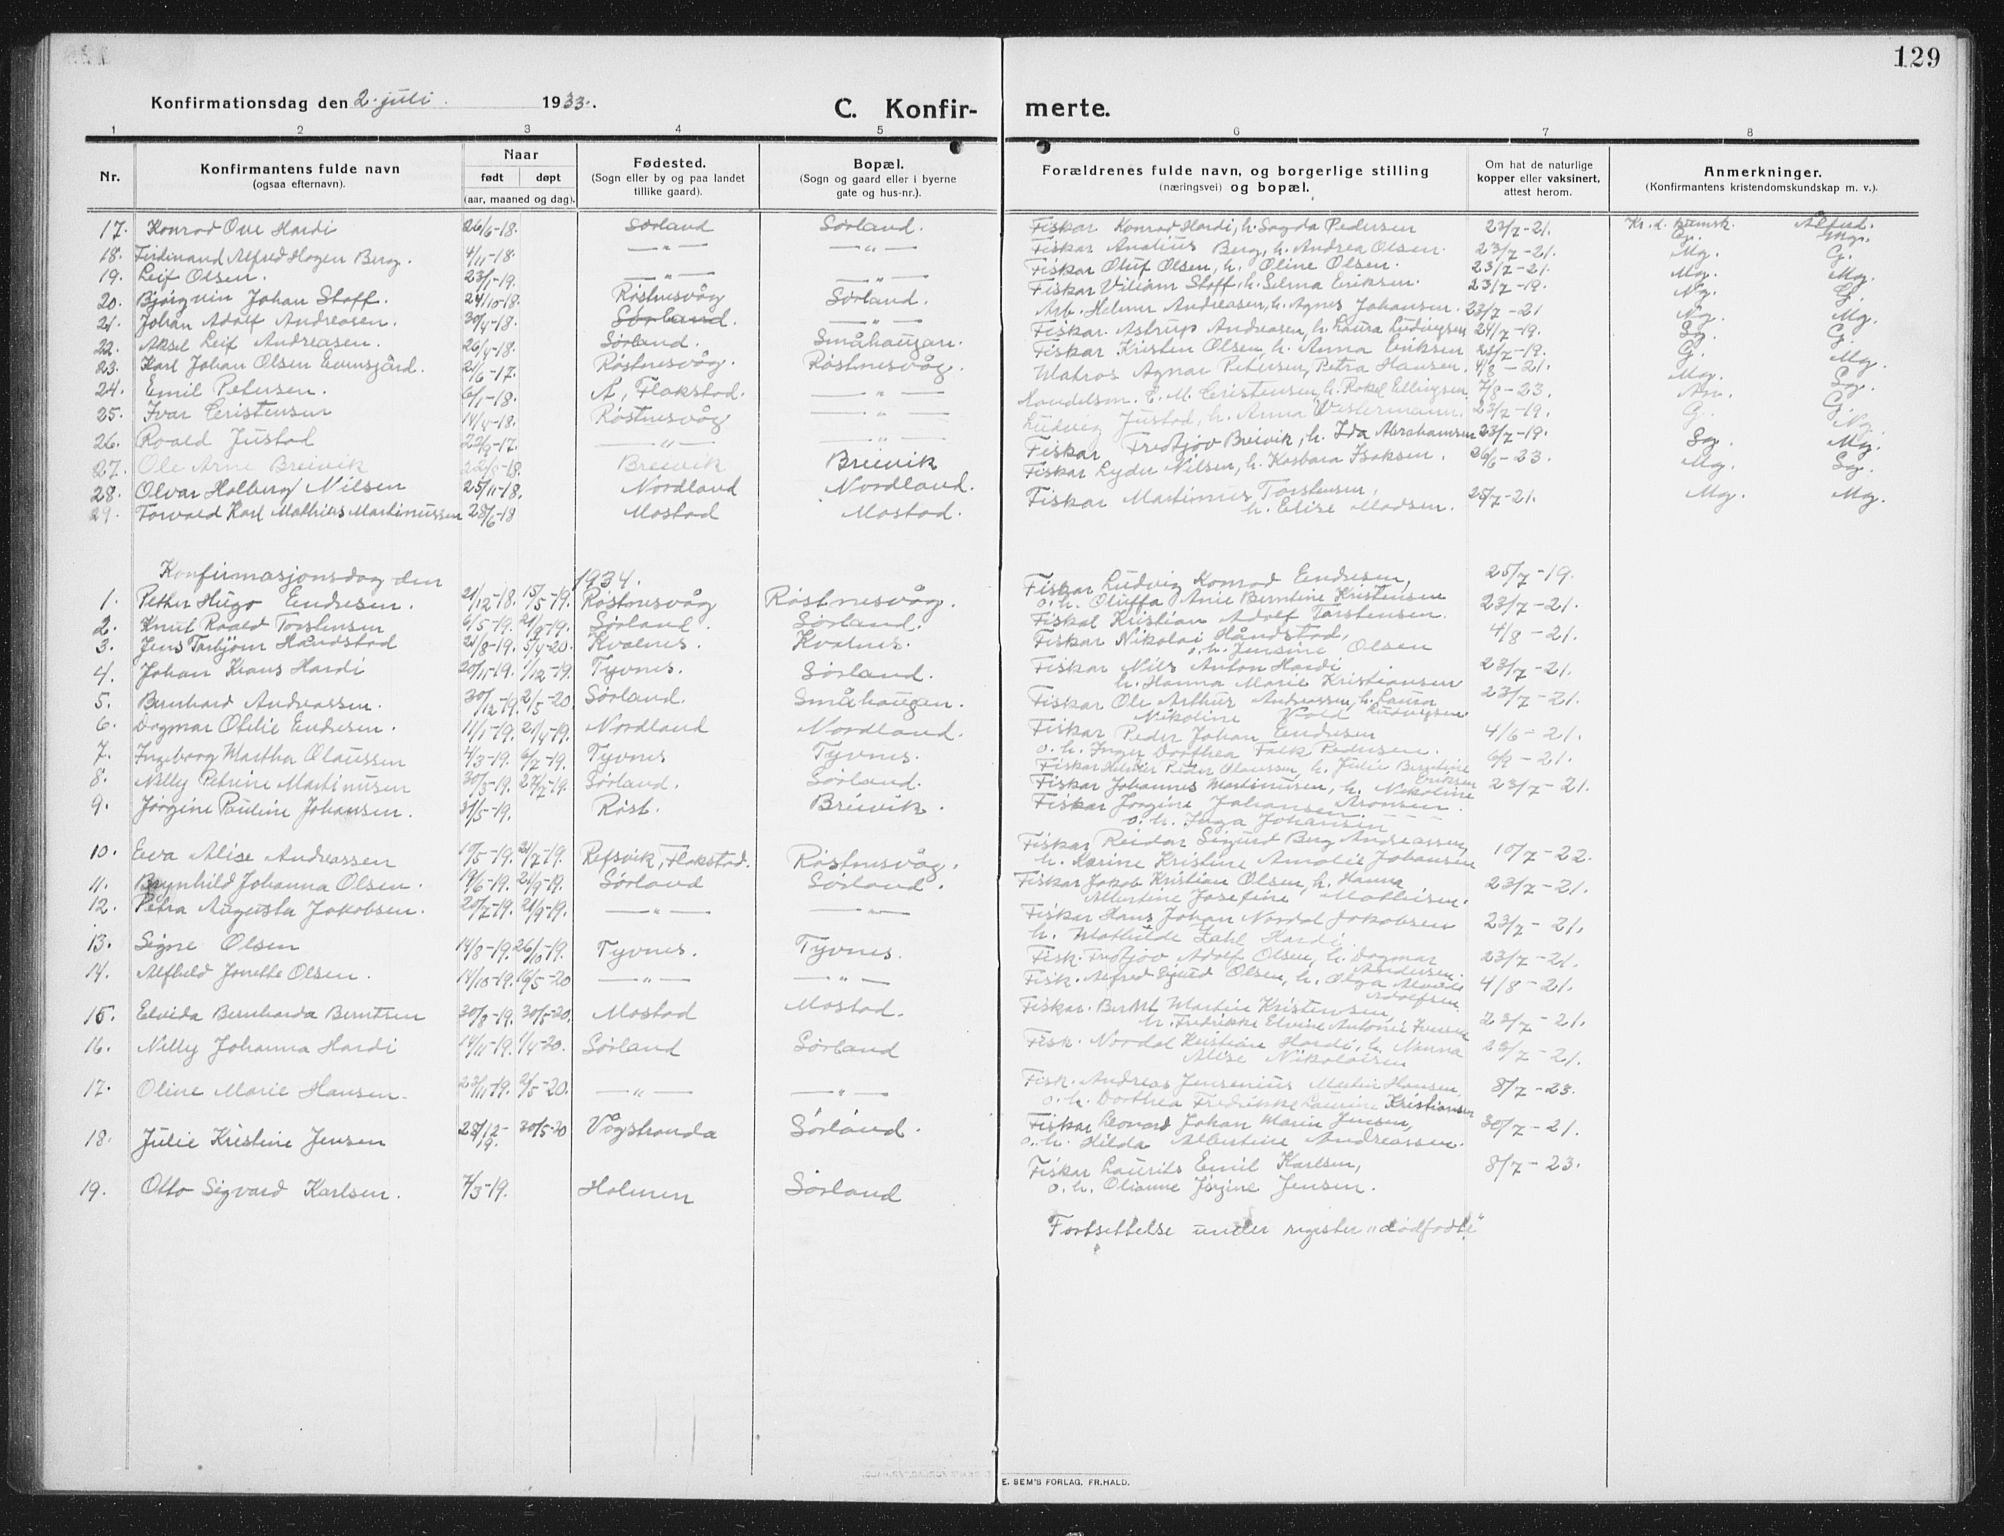 129
Konfirmationsdag den 2. juli 1933.
C. Konfirmerte.
1 2 3 4 5 6 7 8
Nr.
Konfirmantens fulde navn
(ogsaa efternavn).
Naar
født døpt
(aar, maaned og dag).
Fødested.
(Sogn eller by og paa landet
tillike gaard).
Bopæl.
(Sogn og gaard eller i byerne
gate og hus-nr.).
Forældrenes fulde navn, og borgerlige stilling
(næringsvei) og bopæl.
Om hat de naturlige
kopper eller vaksinert,
attest herom.
Anmerkninger.
(Konfirmantens kristendomskundskap m. v.).
17. Konrad Ove Hardi 26/6-18. Sørland Sørland. Fiskar Konrad Hardi, h. Sagda Pedersen 23/7-21. Kr. d. kunnsk. Adferd.
18. Ferdinand Alfred Hagen Berg. 4/11-18. —"— —"— Fiskar Anatius Berg, h. Andrea Olsen. 23/7-21. G. Mg.
19. Leif Olsen. 23/1-19. —"— —"— Fiskar Oluf Olsen, h. Oline Olsen. 23/7-21. Mg. G.
20. Bjørgvin Johan Stoff. 24/10-18. Røstnesvåg Sørland. Fiskar Viliam Stoff, h. Selma Eriksen. 23/7-19. Mg. Mg.
21. Johan Adolf Andreasen. 30/4-18. Sørland. —"— Arb. Helmer Andreasen, h. Agnes Johansen. 23/7-21 Ng. G.
22. Aksel Leif Andreasen. 26/4-18. Sørland. Småhaugan. Fiskar Astrup Andreasen, h. Laura Ludvigsen 24/7-19. Ng. Mg.
23. Karl Johan Olsen Evensgård. 21/6-17. Røstnesvåg. Røstnesvåg. Fiskar Kristen Olsen, h. Anna Eriksen 23/7-19. Sg. G.
24. Emil Petersen. 6/1-18. Å, Flakstad. —"— Matros Agnar Petersen, Petra Hansen. 4/8-21. G. Mg.
25. Ivar Cristensen 14/4-18. Røstnesvåg —"— Handelsm. C. M. Cristensen, h. Rakel Ellingsen 7/8-23. Mg. Sg.
26. Roald Justad 22/9-17. —"— —"— Ludvig Justad, h. Anna Westermann. 23/7-19. G.
27. Ole Arne Breivik 22/8-18 Breivik Breivik Fiskar Fredtjov Breivik, h. Ida Abrahamsen 23/7-19. G. Ng.
28. Olvar Holberg Nilsen 25/11-18. Nordland Nordland. Fiskar Lyder Nilsen, h. Kasbara Isaksen. 26/6-23. Sg. Mg.
29. Torvald Karl Mathias Martinussen 28/6-18 Mostad Mostad. Fiskar Martinus Torstensen, 25/7-21. Mg. Mg.
h. Elise Madsen.
Konfirmasjonsdag den 1934.
1. Petter Hugo Endresen. 21/12-18. 15/5-19. Røstnesvåg Røstnesvåg. Fiskar Ludvig Konrad Endresen, 25/7-19.
o. h. Oluffa Anie Berntine Kristensen
2. Knut Roald Torstensen 6/5-19. 21/9-19. Sørland. Sørland. Fiskar Kristian Adolf Torstensen 23/7-21.
3. Jens Torbjørn Håndstad 21/8-19. 5/4-20. Kvalnes. Kvalnes. Fiskar Nikolai Håndstad, 4/8-21.
o. h. Jensine Olsen
4. Johan Klaus Hardi 20/11-19. 1/12-19. Tyvnes. Sørland. Fiskar Nils Anton Hardi 23/7-21.
h. Hanna Marie Kristiansen
5. Bernhard Andreassen. 30/12-19. 2/5-20 Sørland. Småhaugen. Fiskar Ole Arthur Andreassen, h. Laura 23/7-21.
Nikoline Vold Ludvigsen
6. Dagmar Otilie Endresen. 11/1-19. 21/4-19. Nordland Nordland. Fiskar Peder Johan Endresen 4/6-21.
o. h. Inger Dorthea Falk Pedersen.
7. Ingeborg Martha Olaussen 4/3-19. 6/7-19. Tyvnes Tyvnes. Fiskar Hilmer Peder Olaussen, h. Julie Berntine Eriksen 6/9-21.
8. Nilly Petrine Martinusen 30/3-19. 27/7-19. Sørland. Sørland. Fiskar Johannes Martinusen, h. Nikoline Aronsen. 23/7-21.
9. Jørgine Pauline Johansen. 31/5-19. Røst. Breivik. Fiskar Jørgine Johansen
o. h. Inga Johansen
10. Eva Alise Andreassen 19/5-19. 21/7-19. Refsvik, Flakstad. Røstnesvåg. Fiskar Reidar Sigurd Berg Andreassen, 10/7-22.
h. Karine Kristine Amalie Johansen
11. Brynhild Johanna Olsen. 19/6-19. 21/9-19. Sørland Sørland. Fiskar Jakob Kristian Olsen, h. Hanna 23/7-21.
Albertine Josefine Mathisen.
12. Petra Augusta Jakobsen. 20/7-19. 21/9-19. —"— —"— Fiskar Hans Johan Nordal Jakobsen 23/7-21.
h. Mathilde Zahl Hardi
13. Signe Olsen 14/8-19. 26/10-19. Tyvnes. Tyvnes. Fisk. Fridtjov Adolf Olsen, h. Dagmar Andersen. 23/7-21.
14. Alfhild Jonette Olsen. 14/10-19. 16/5-20 —"— —"— Fisk. Alfred Sjurd Olsen, h. Olga Alvilde Adolfsen 4/8-21.
15. Elvida Bernharda Berntsen 30/8-19. 30/5-20. Mostad Mostad. Fiskar. Berht Martin Kristensen, 23/7-21.
h. Fredrikke Elvine Antonie Iversen
16. Nilly Johanna Hardi 14/11-19. 1/4-20. Sørland Sørland Fisk. Nordal Kristian Hardi, h. Nanna 23/7-21.
Alise Nikolaisen
17. Oline Marie Hansen. 23/11-19. 2/5-20. —"— —"— Fisk. Andreas Jensenius Martin Hansen, 8/7-23.
o. h. Dorthea Fredrikke Laurine Kristiansen
18. Julie Kristine Jensen 28/12-19. 30/5-20 Vågstranda Sørland. Fiskar Leonard Johan Marin Jensen, 30/7-21.
o. h. Hilda Albertine Andreassen.
19. Otto Sigvard Karlsen. 7/3-19. Holmen Sørland Fiskar Laurits Emil Karlsen, 8/7-23.
o. h. Olianne Jørgine Jensen.
Fortsettelse under register "dødfødte"
E. SEM'S FORLAG. FR.HALD.